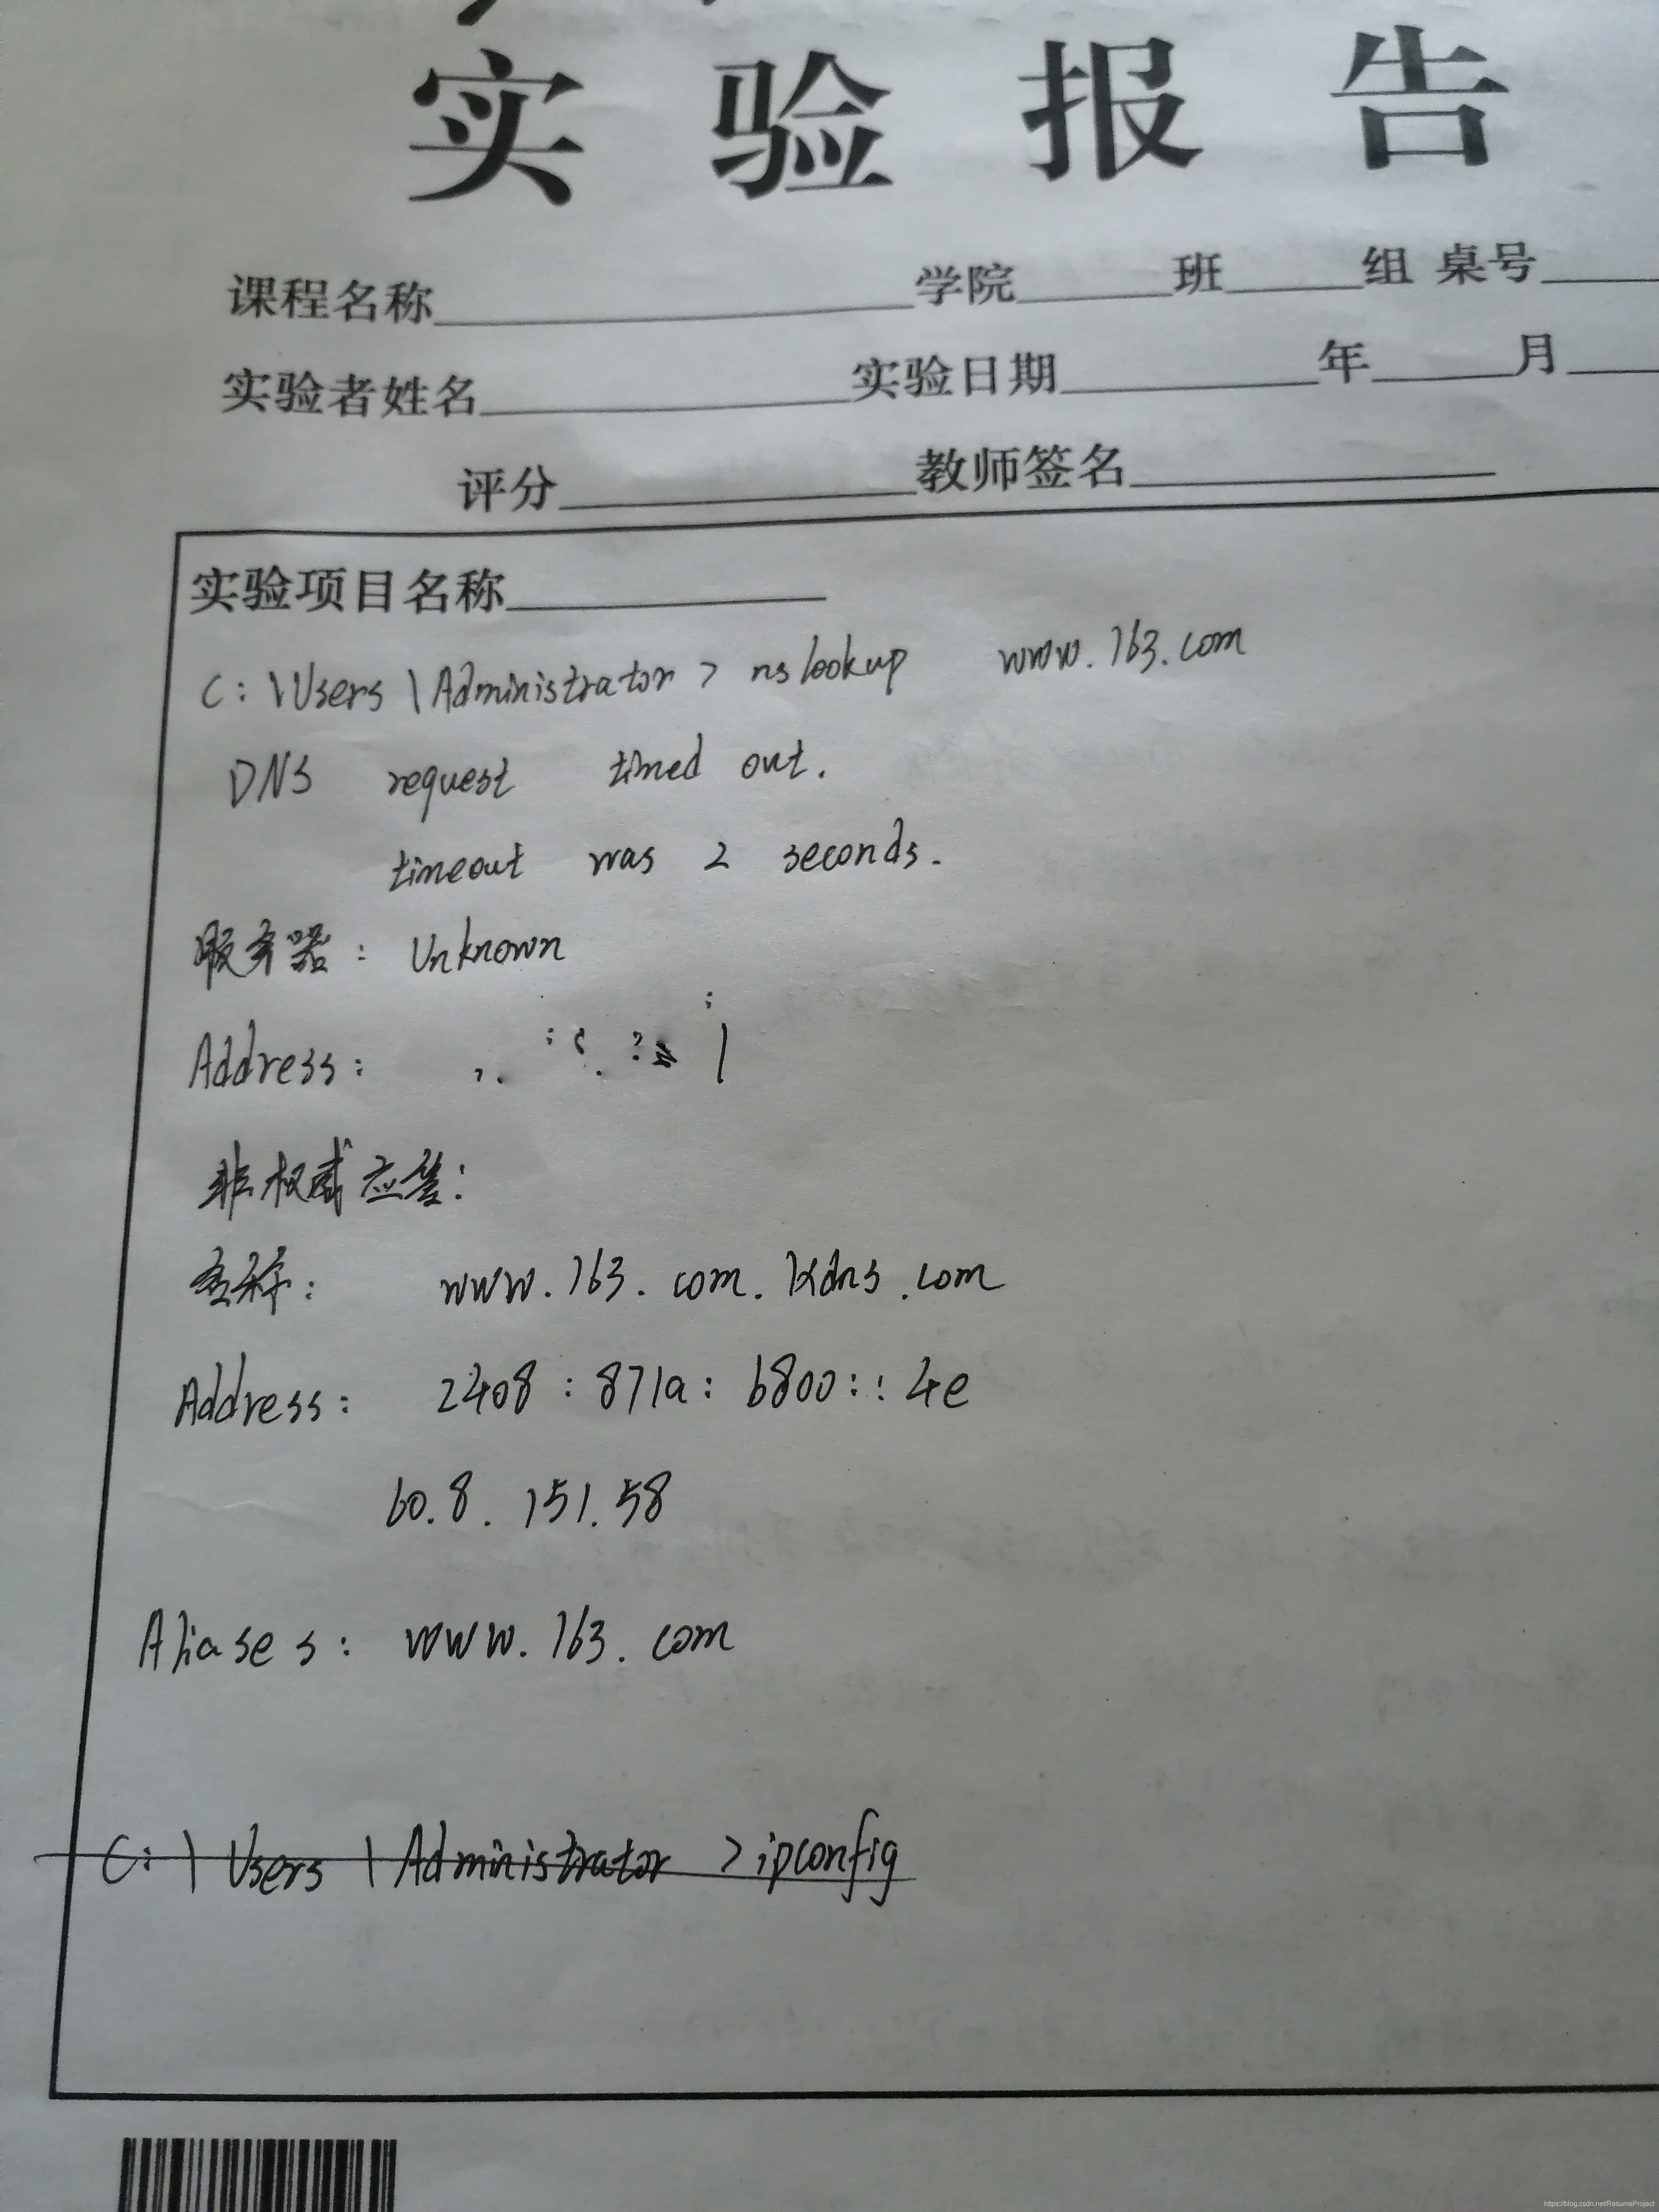 实验报告
课程名称 学院 班 组 桌号
实验者姓名 实验日期 年 月
评分 教师签名
实验项目名称
C:\Users\Administrator> nslookup www.163.com
DNS request timed out.
timeout was 2 seconds.
服务器: Unknown
Address:
非权威应答:
名称: www.163.com.lxdns.com
Address: 2408:871a:b800::4e
60.8.151.58
Aliases: www.163.com
C:\Users\Administrator >ipconfig
https://blog.csdn.net/ResumeProject